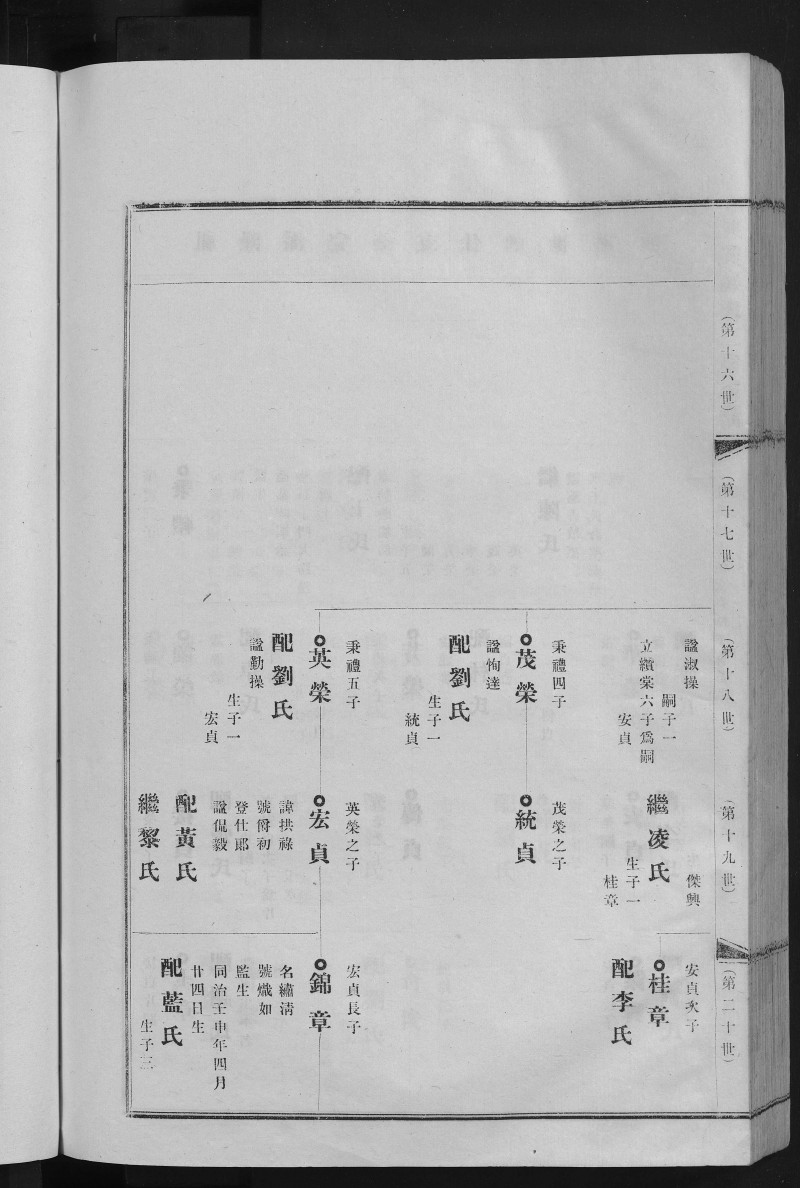 （第十六世）
（第十七世）
（第十八世）
（第十九世）
（第二十世）
諡淑操
嗣子一
立纘棠六子為嗣
安貞
秉禮四子
茂榮
諡恂達
配劉氏
生子一
統貞
秉禮五子
英榮
配劉氏
諡勤操
生子一
宏貞
傑興
繼凌氏
生子一
桂章
茂榮之子
統貞
英榮之子
宏貞
諱拱祿
號爵初
登仕郞
諡侃毅
配黃氏
繼黎氏
安貞次子
桂章
配李氏
宏貞長子
錦章
名繡淸
號熾如
監生
同治壬申年四月
廿四日生
配藍氏
生子三